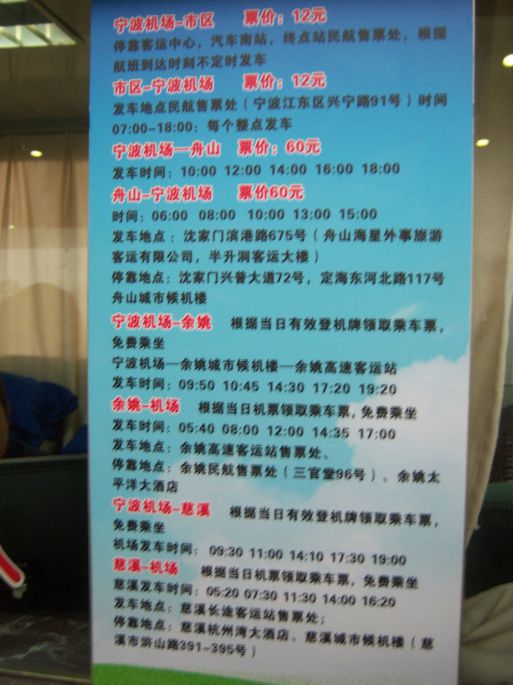 宁波机场-市区 票价：12元
停靠客运中心，汽车南站，终点站民航售票处，根据
航班到达时刻不定时发车
市区-宁波机场 票价：12元
发车地点民航售票处（宁波江东区兴宁路91号）时间
07:00-18:00；每个整点发车
宁波机场—舟山 票价：60元
发车时间：10:00 12:00 14:00 16:00 18:00
舟山-宁波机场 票价60元
时间：06:00 08:00 10:00 13:00 15:00
发车地点：沈家门滨港路675号（舟山海星外事旅游
客运有限公司，半升洞客运大楼）
停靠地点：沈家门兴普大道72号，定海东河北路117号
舟山城市候机楼
宁波机场-余姚 根据当日有效登机牌领取乘车票，
免费乘坐
宁波机场—余姚城市候机楼—余姚高速客运站
发车时间：09:50 10:45 14:30 17:20 19:20
余姚-机场 根据当日机票领取乘车票，免费乘坐
发车时间：05:40 08:00 12:00 14:35 17:00
发车地点：余姚高速客运站售票处、
停靠地点：余姚民航售票处（三官堂96号）、余姚太
平洋大酒店
宁波机场-慈溪 根据当日有效登机牌领取乘车票，
免费乘坐
机场发车时间：09:30 11:00 14:10 17:30 19:00
慈溪-机场 根据当日机票领取乘车票，免费乘坐
慈溪发车时间：05:20 07:30 11:30 14:00 16:20
发车地点：慈溪长途客运站售票处；
停靠地点：慈溪杭州湾大酒店、慈溪城市候机楼（慈
溪市浒山路391-395号）